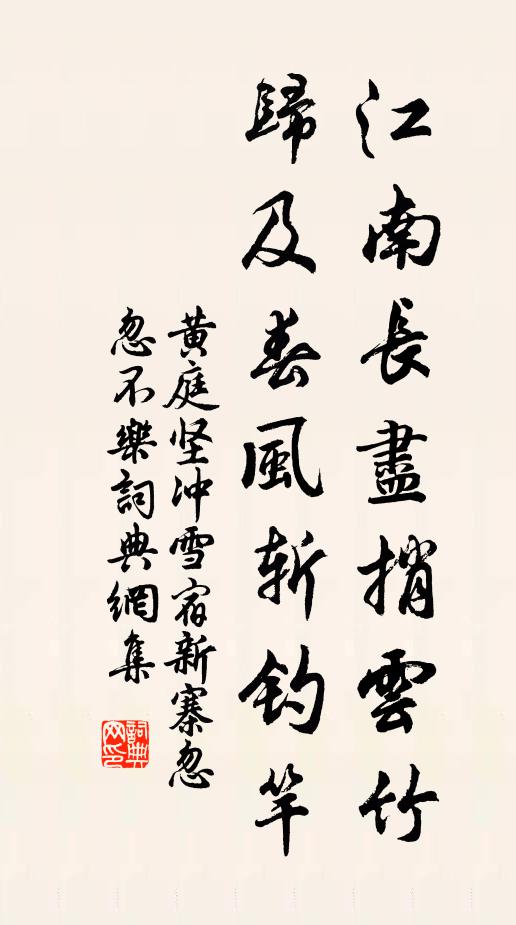 江南長盡捎雲竹
歸及春風斬釣竿
黄庭坚冲雪宿新寨忽
忽不樂詞典網集
詞典
网印